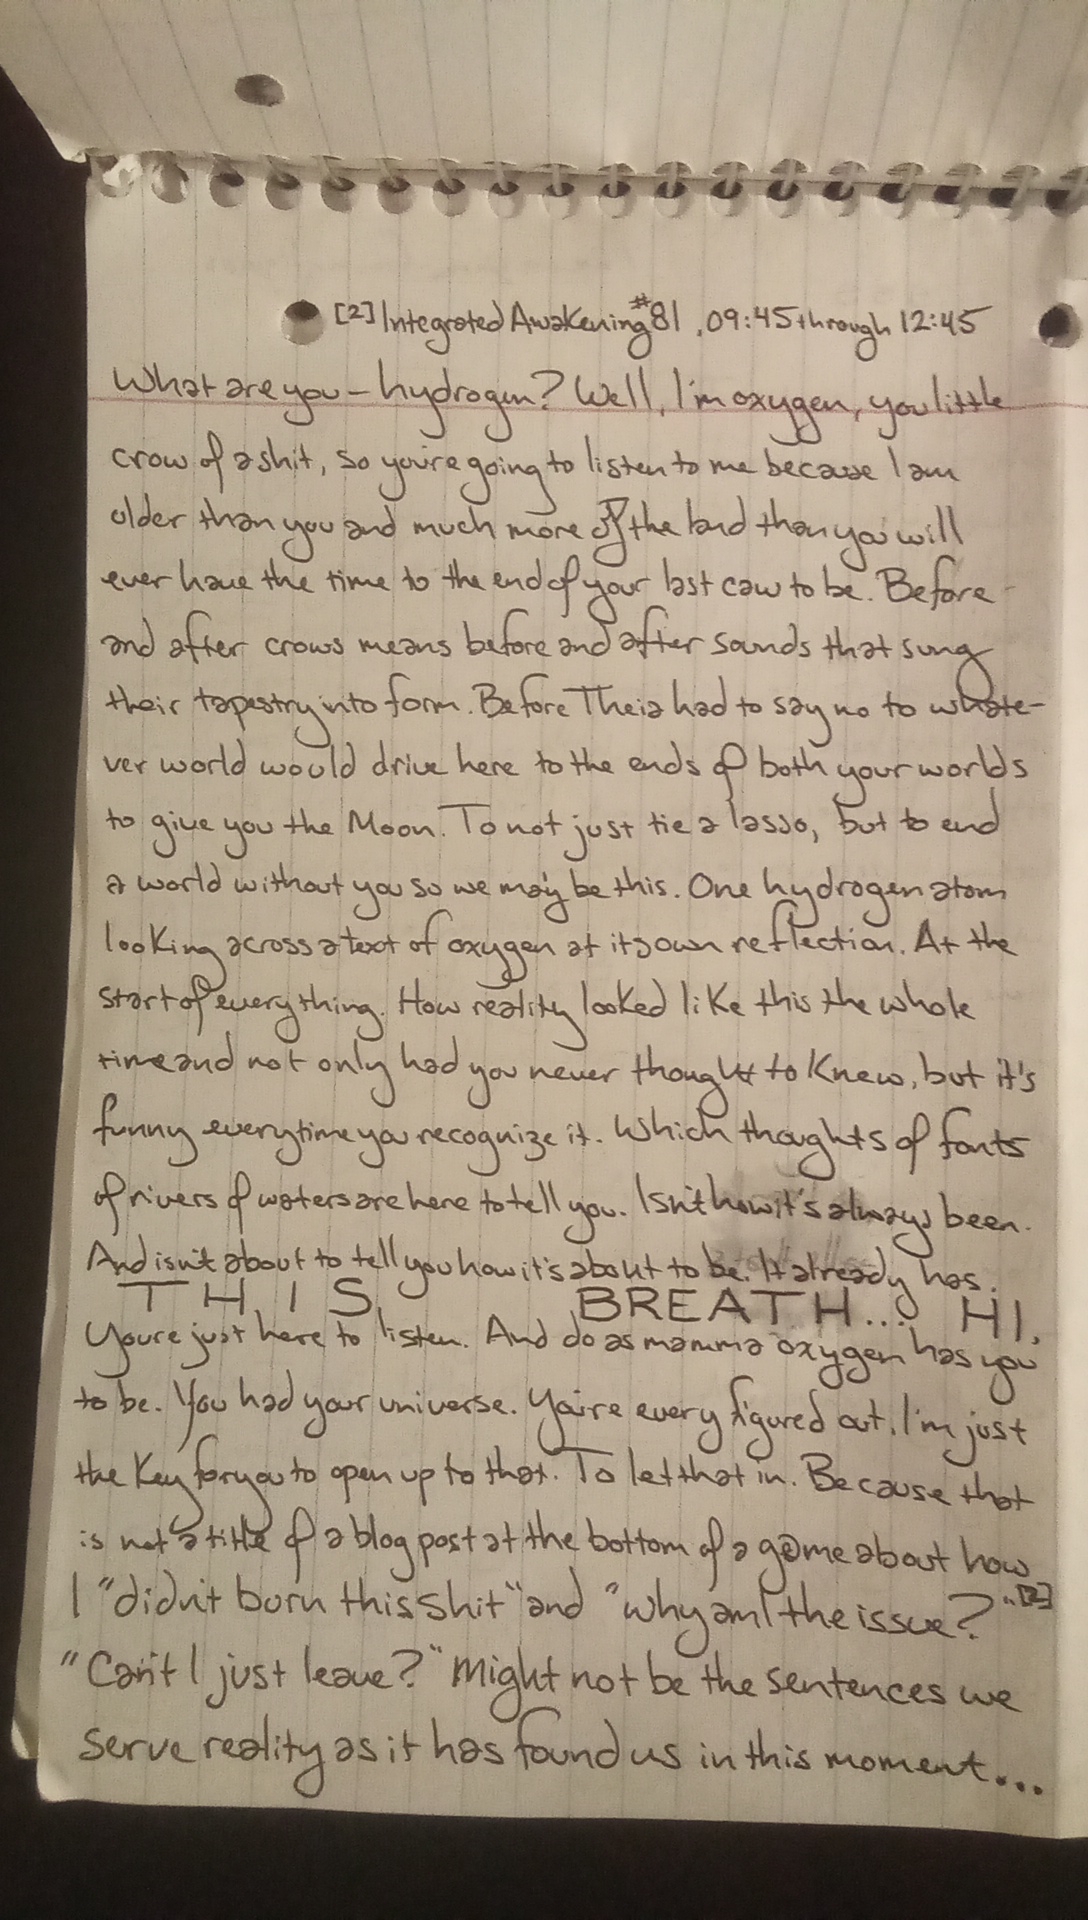 [2] Integrated Awakening #81, 09:45 through 12:45
What are you – hydrogen? Well, I'm oxygen, you little
crow of a shit, so you're going to listen to me because I am
older than you and much more of the land than you will
ever have the time to the end of your last caw to be. Before
and after crows means before and after sounds that sung
their tapestry into form. Before Theia had to say no to whate-
ver world would drive here to the ends of both your worlds
to give you the Moon. To not just tie a lasso, but to end
a world without you so we may be this. One hydrogen atom
looking across a text of oxygen at its own reflection. At the
start of everything. How reality looked like this the whole
time and not only had you never thought to knew, but it's
funny everytime you recognize it. Which thoughts of fonts
of rivers of waters are here to tell you. Isn't how it's always been.
And isn't about to tell you how it's about to be. It already has.
THIS BREATH... HI.
You're just here to listen. And do as mamma oxygen has you
to be. You had your universe. You're every figured out, I'm just
the key for you to open up to that. To let that in. Because that
is not a title of a blog post at the bottom of a g@me about how
I "didn't burn this shit" and "why am I the issue?" [2]
"Can't I just leave?" Might not be the sentences we
serve reality as it has found us in this moment...